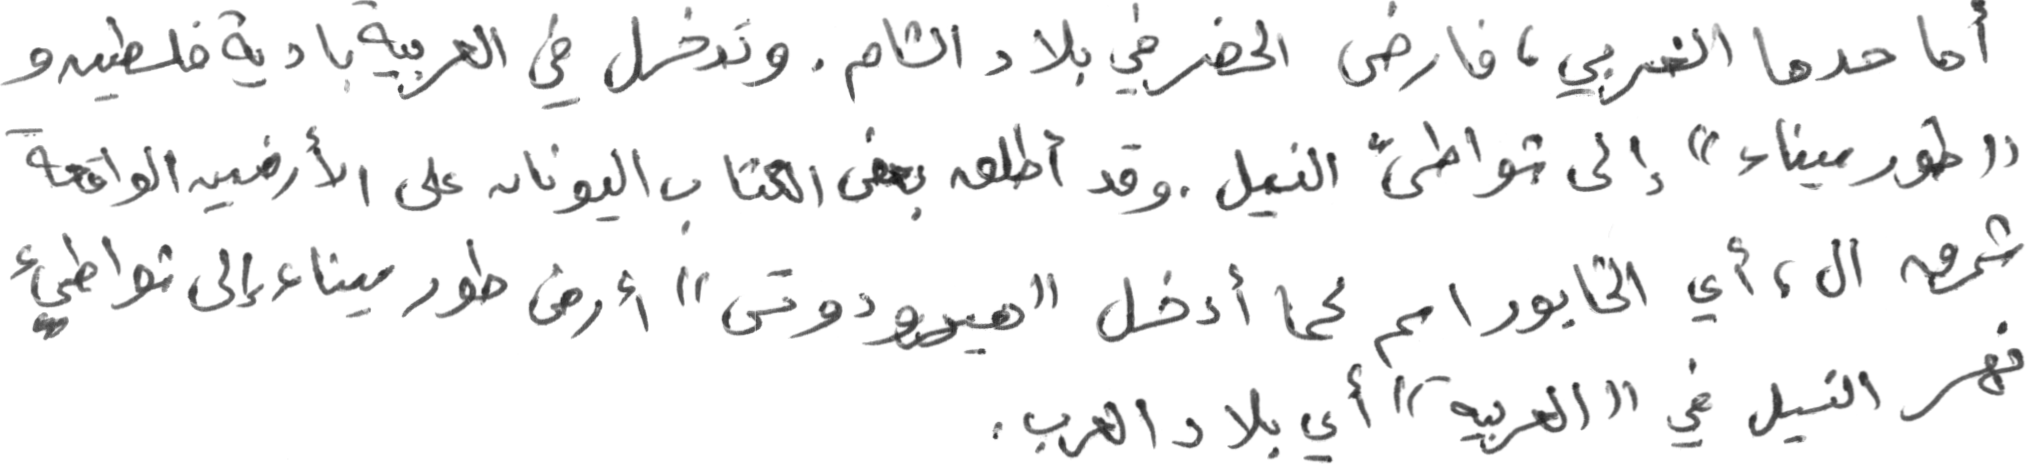 أما حدها الغربي، فارض الحضر في بلاد الشام. وتدخل في العربية بادية فلسطين و
"طور سيناء" إلى شواطئ النيل. وقد أطلق بعض الكتاب اليونان على الأرضين الواقعة
شرق ال، أي الخابور اسم كما أدخل "هيرودوتس" أرض طور سيناء إلى شواطئ
نهر النيل في "العربية" أي بلاد العرب.